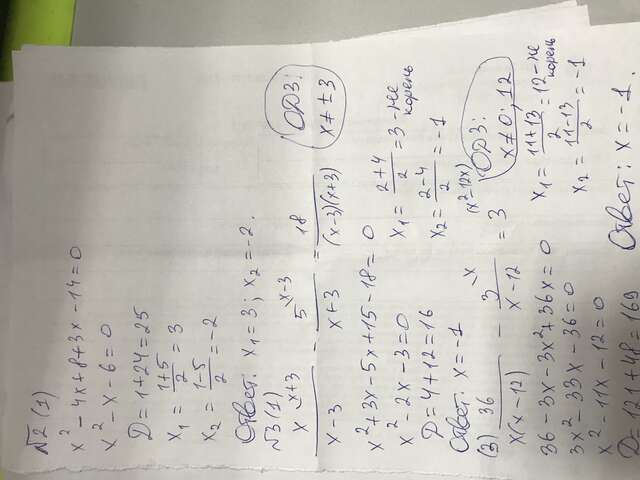 №2 (1)
x² - 4x + 8 + 3x - 14 = 0
x² - x - 6 = 0
D = 1 + 24 = 25
x₁ = (1+5)/2 = 3
x₂ = (1-5)/2 = -2
Ответ: x₁ = 3; x₂ = -2.
№3 (1)
x \ x+3 / (x-3) - 5 \ x-3 / (x+3) = 18 / ((x-3)(x+3))
ОДЗ:
x ≠ ±3
x² + 3x - 5x + 15 - 18 = 0
x² - 2x - 3 = 0
D = 4 + 12 = 16
x₁ = (2+4)/2 = 3 - не
корень
x₂ = (2-4)/2 = -1
Ответ: x = -1
(3) 36 / (x(x-12)) - 3 \ x / (x-12) = 3 \ (x²-12x)
ОДЗ:
x ≠ 0; 12
36 - 3x - 3x² + 36x = 0
3x² - 33x - 36 = 0
x² - 11x - 12 = 0
D = 121 + 48 = 169
x₁ = (11+13)/2 = 12 - не
корень
x₂ = (11-13)/2 = -1
Ответ: x = -1.